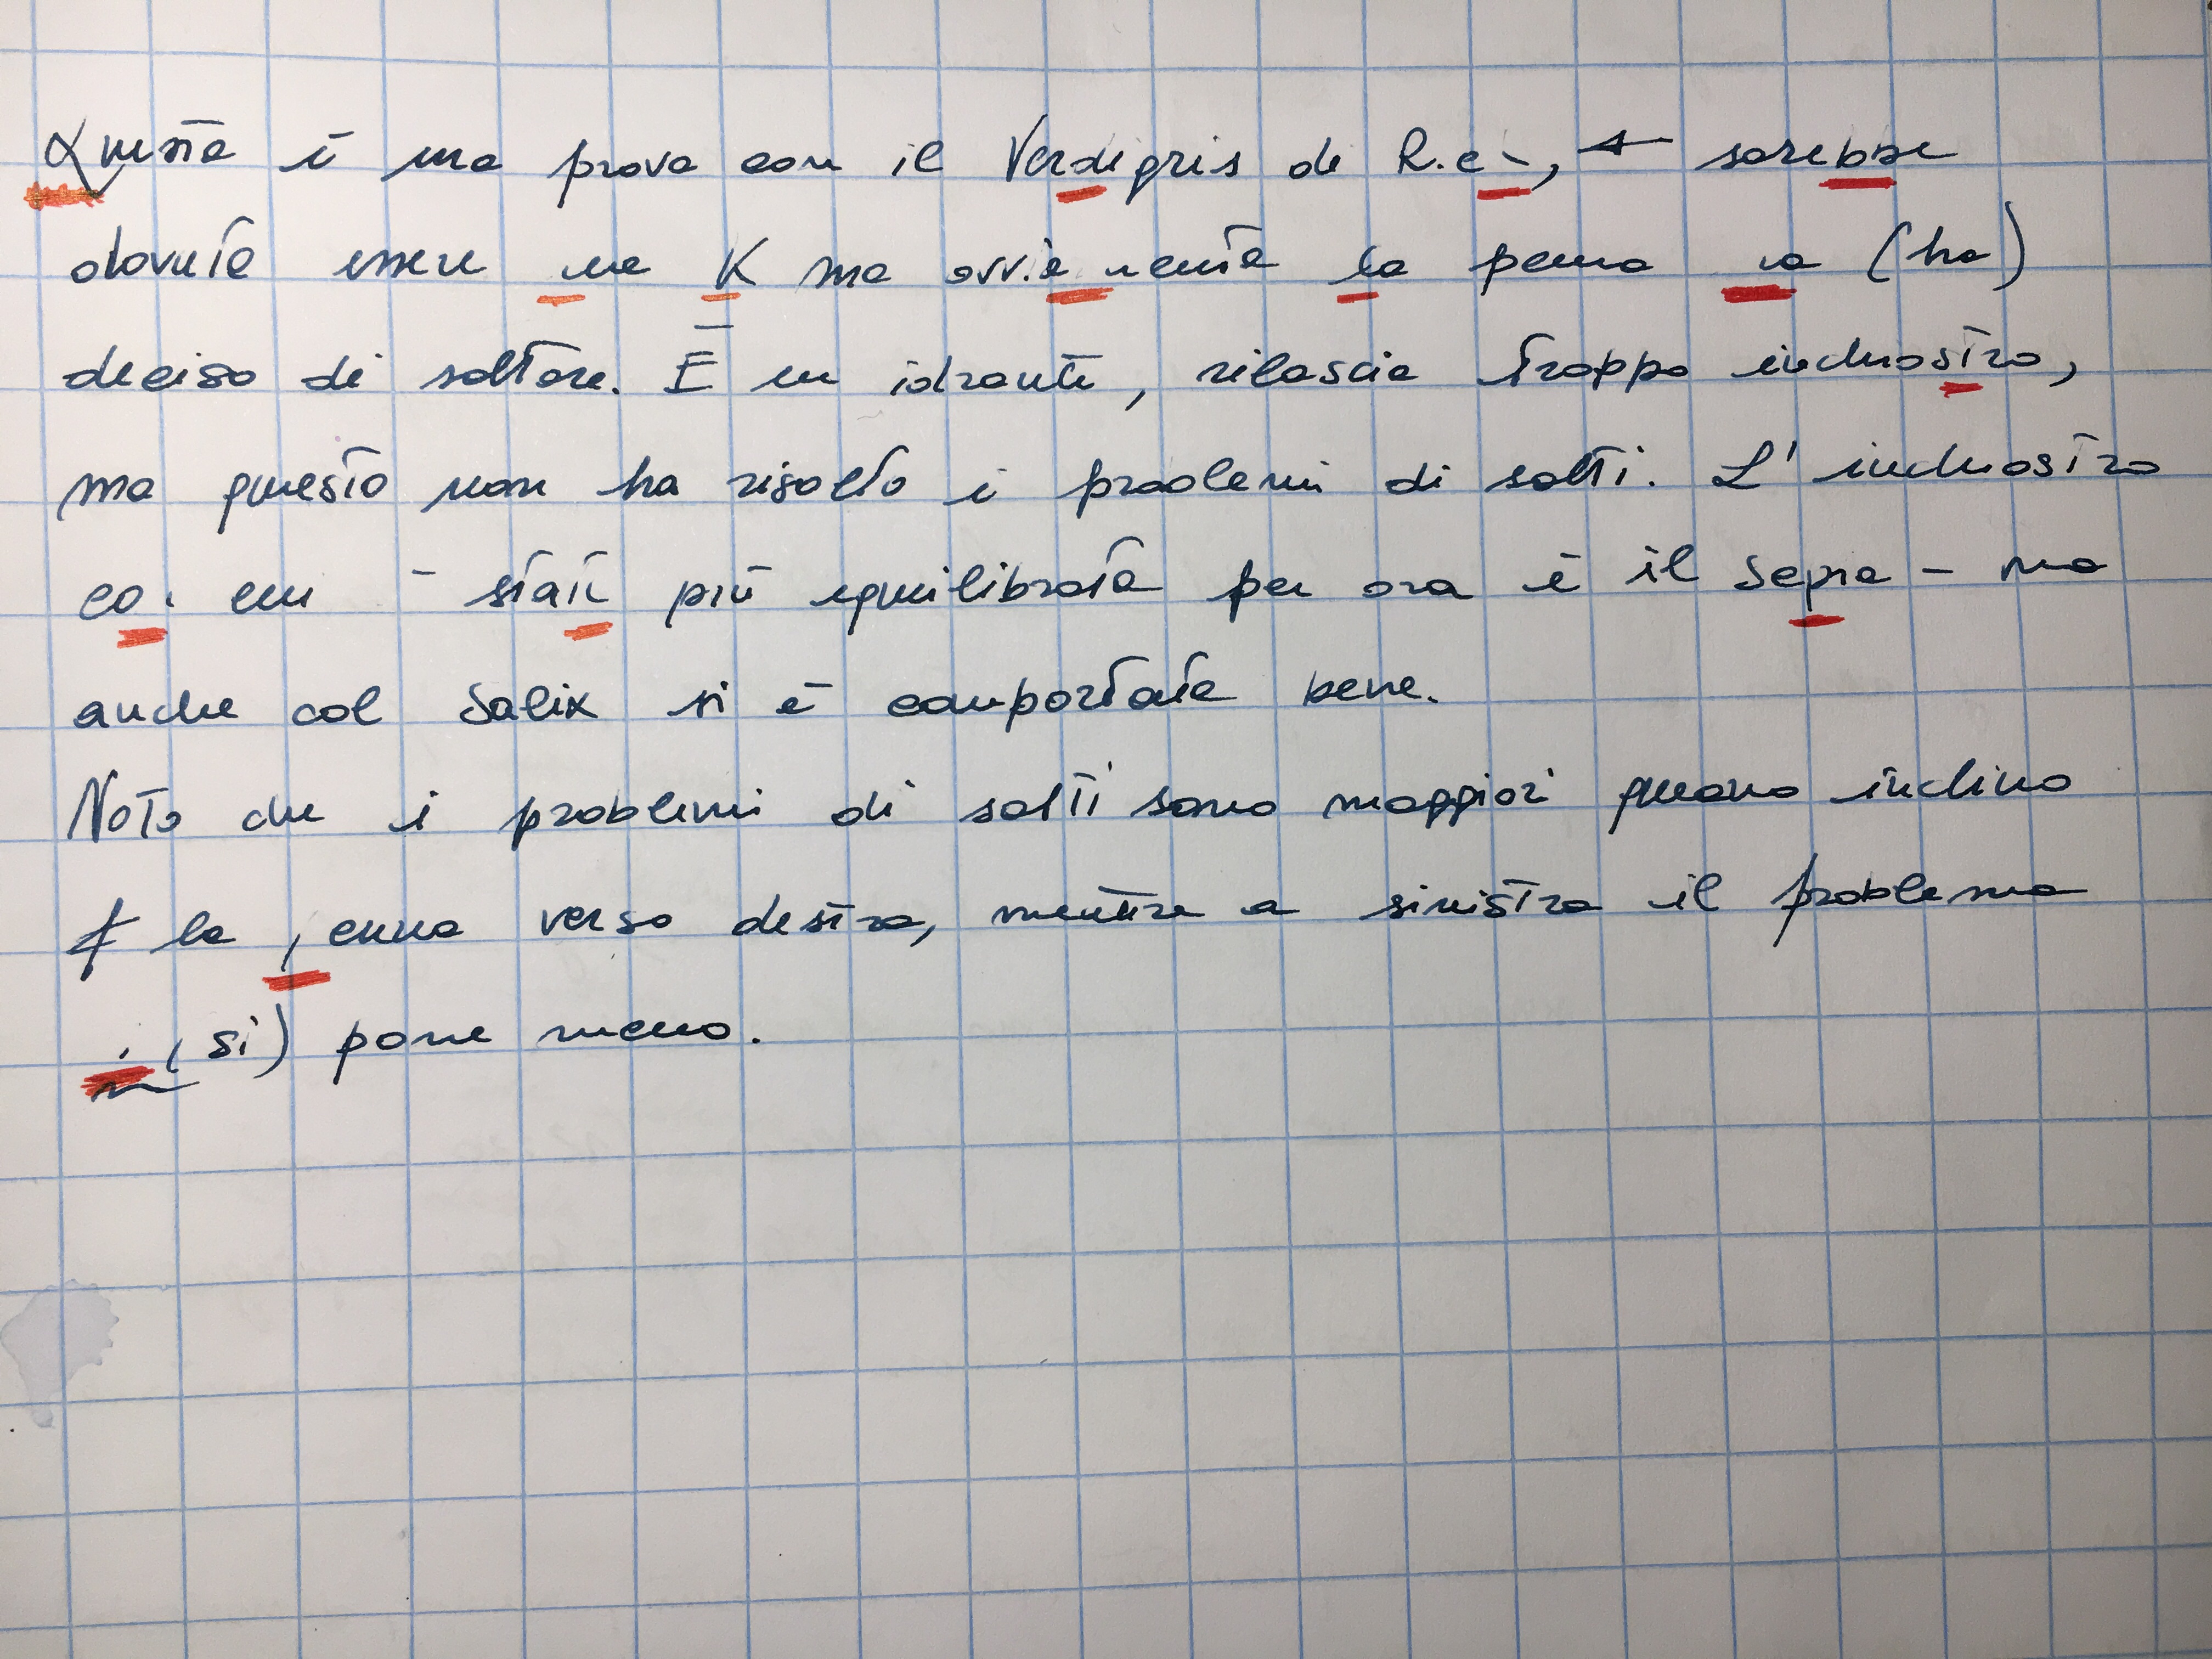 Questa è una prova con il Verdigris de R.e-, sarebbe
dovuta essere una K ma ovviamente la penna ha (ha)
deciso di saltare. È un idrante, rilascia troppo inchiostro,
ma questo non ha risolto i problemi di salti. L'inchiostro
co. cui - stata più equilibrata per ora è il Sepia - ma
anche col Salix si è comportata bene.
Noto che i problemi di salti sono maggiori quano inclino
la penna verso destra, mentre a sinistra il problema
(si) pone meno.